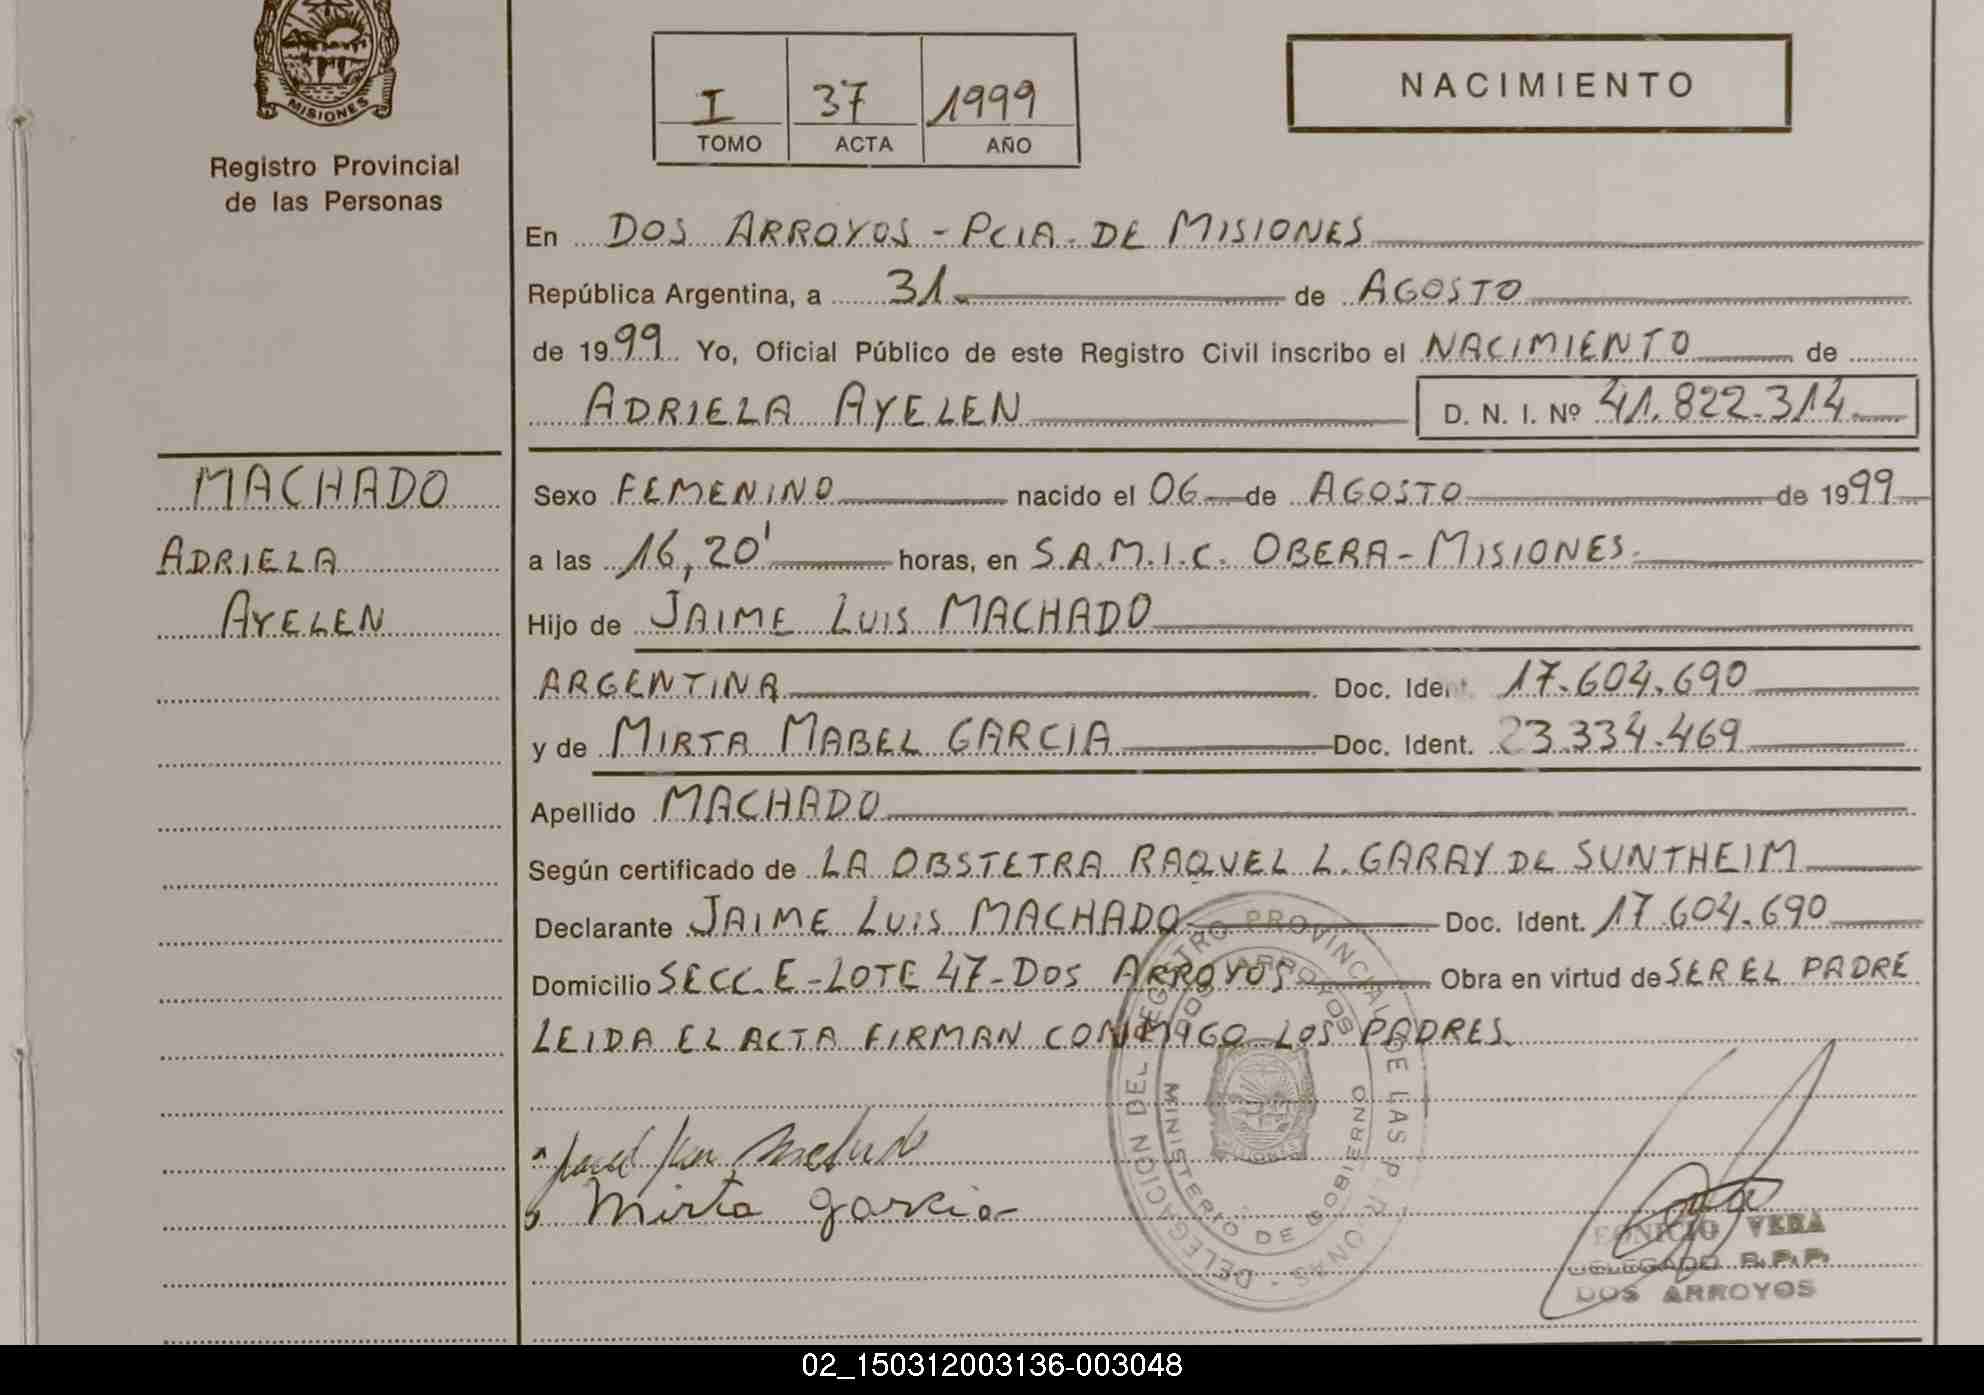 MISIONES
Registro Provincial
de las Personas
I 37 1999
TOMO ACTA AÑO
NACIMIENTO
En DOS ARROYOS - PCIA. DE MISIONES
República Argentina, a 31 de AGOSTO
de 1999 Yo, Oficial Público de este Registro Civil inscribo el NACIMIENTO de
ADRIELA AYELEN D. N. I. Nº 41.822.314
MACHADO
ADRIELA
AYELEN
Sexo FEMENINO nacido el 06 de AGOSTO de 1999
a las 16,20' horas, en S.A.M.I.C. OBERA - MISIONES.
Hijo de JAIME LUIS MACHADO
ARGENTINA Doc. Ident. 17.604.690
y de MIRTA MABEL GARCIA Doc. Ident. 23.334.469
Apellido MACHADO
Según certificado de LA OBSTETRA RAQUEL L. GARAY DE SUNTHEIM
Declarante JAIME LUIS MACHADO Doc. Ident. 17.604.690
Domicilio SECC. E - LOTE 47 - DOS ARROYOS Obra en virtud de SER EL PADRE
LEIDA EL ACTA FIRMAN CONMIGO LOS PADRES.
DELEGACION DEL REGISTRO PROVINCIAL DE LAS PERSONAS
DOS ARROYOS
MINISTERIO DE GOBIERNO
Mirta Garcia
VERA
DELEGADO R.P.P.
DOS ARROYOS
02_150312003136-003048